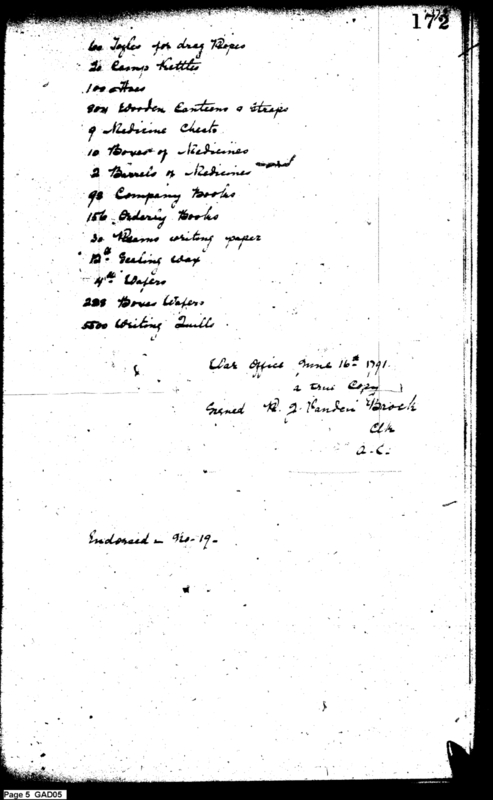 172
60 Togles for drag Ropes
20 Camp Kettles
100 Axes
804 Wooden Canteens & Straps
9 Medicine Chests
10 Boxes of Medicines
2 Barrels of Medicines
98 Company Books
156 Orderly Books
30 Reams writing paper
12lb Sealing Wax
4lb Wafers
288 Boxes Wafers
5500 Writing Quills
War Office June 16th 1791.
a true Copy
Signed R. J. Vanden Brock
Clk
A. C.
Endorsed - No. 19 -
Page 5 GAD05